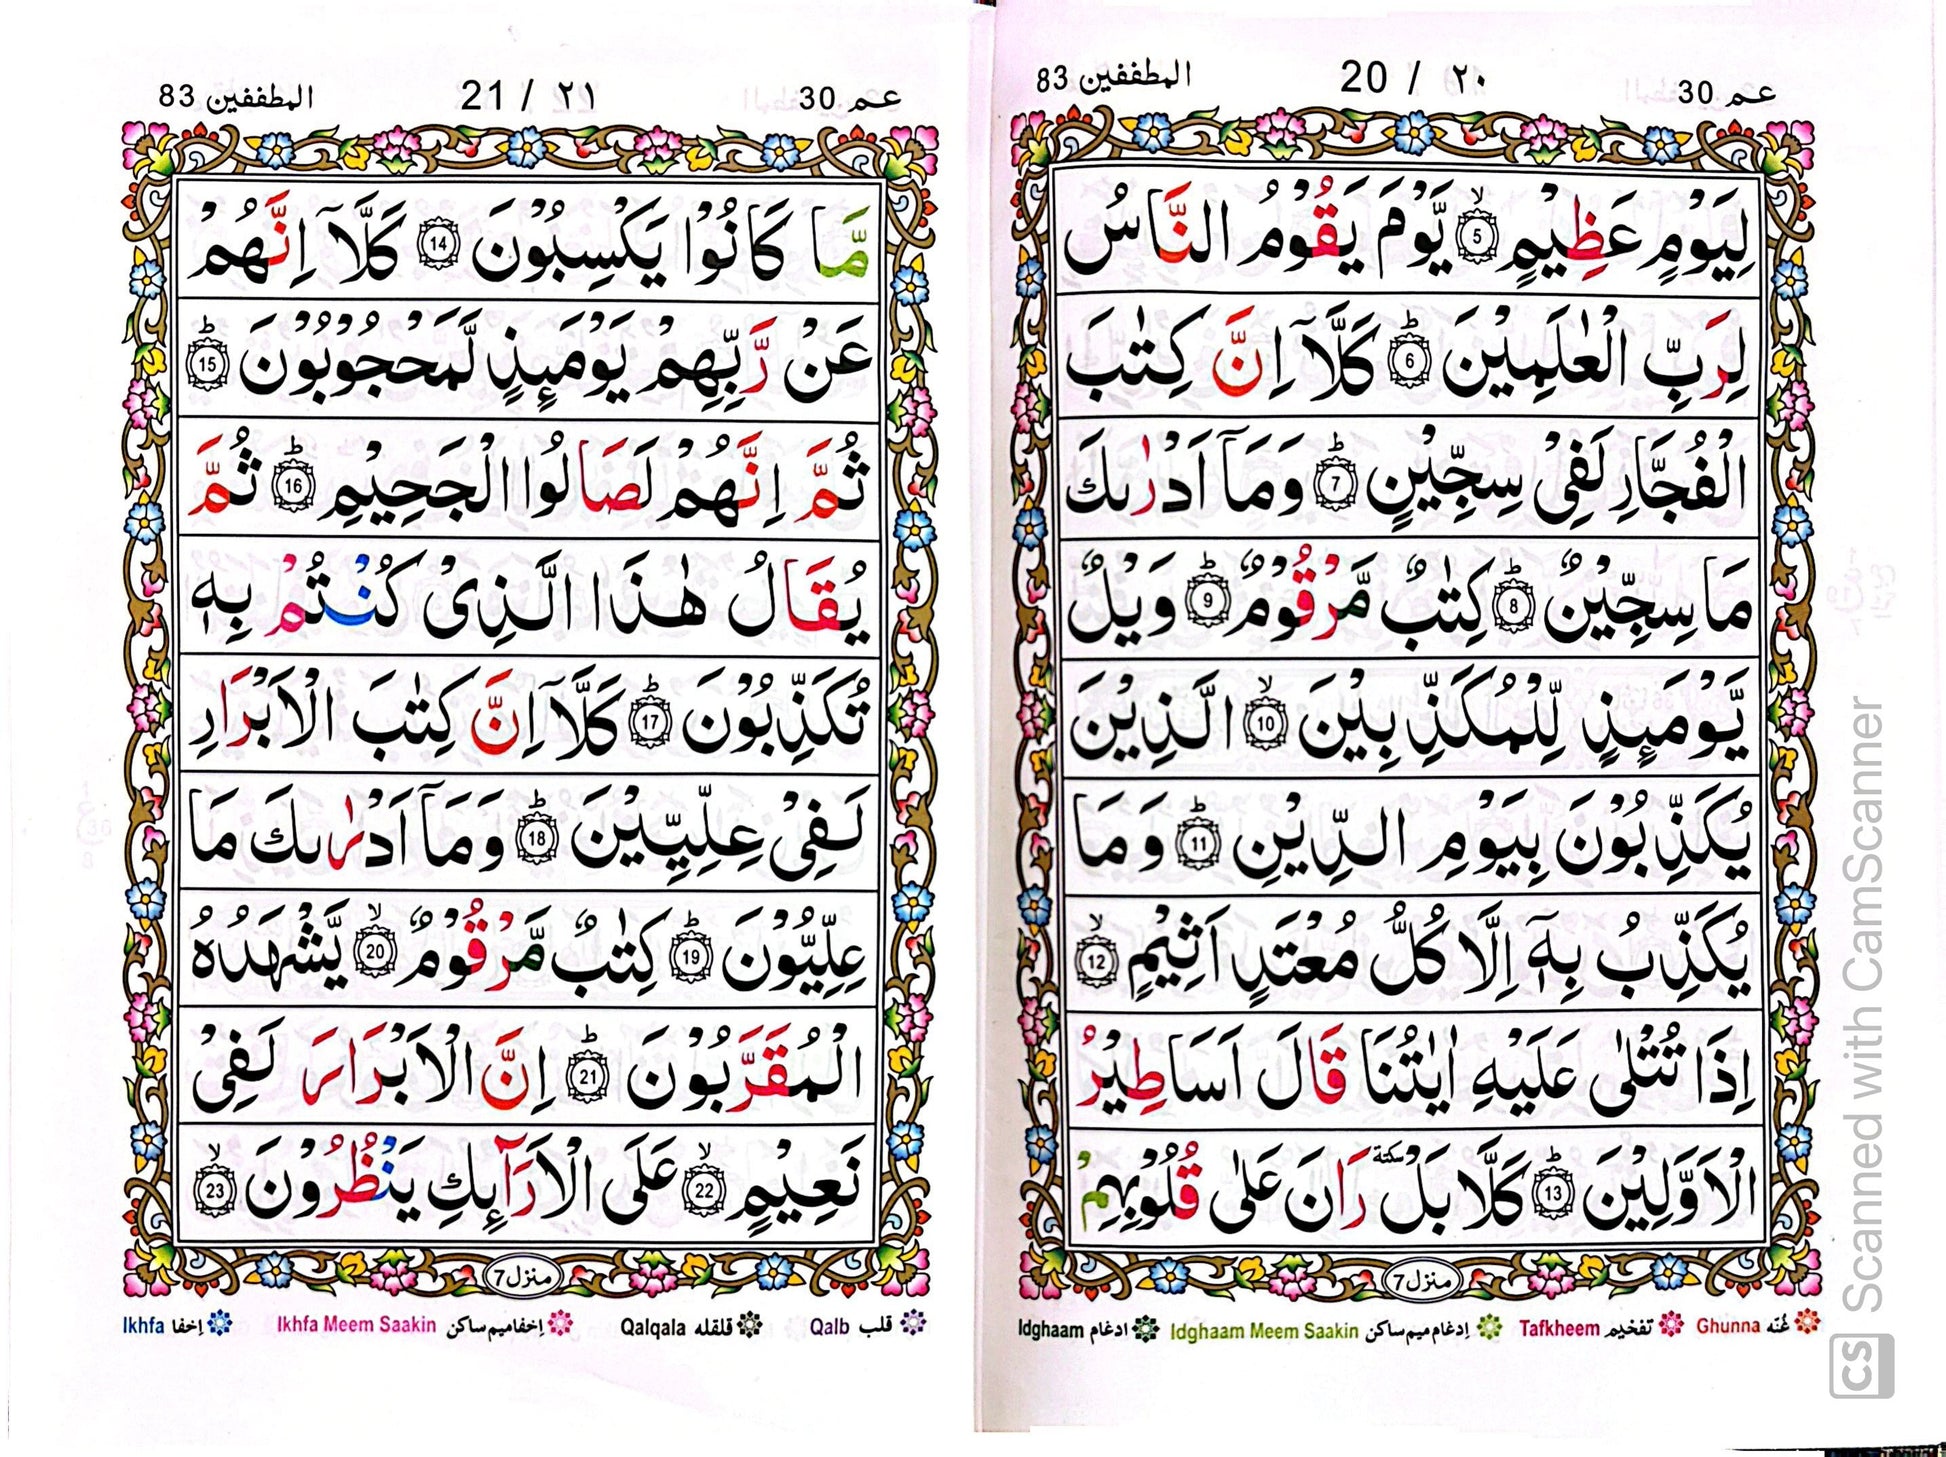 عم 30
20 / ٢٠
المطففين 83
لِيَوْمٍ عَظِيْمٍ ۙ 5 يَّوْمَ يَقُوْمُ النَّاسُ
لِرَبِّ الْعٰلَمِيْنَ ؕ 6 كَلَّاۤ اِنَّ كِتٰبَ
الْفُجَّارِ لَفِيْ سِجِّيْنٍ ؕ 7 وَمَاۤ اَدْرٰىكَ
مَا سِجِّيْنٌ ؕ 8 كِتٰبٌ مَّرْقُوْمٌ ؕ 9 وَيْلٌ
يَّوْمَىِٕذٍ لِّلْمُكَذِّبِيْنَ ۙ 10 الَّذِيْنَ
يُكَذِّبُوْنَ بِيَوْمِ الدِّيْنِ ؕ 11 وَمَا
يُكَذِّبُ بِهٖۤ اِلَّا كُلُّ مُعْتَدٍ اَثِيْمٍ ۙ 12
اِذَا تُتْلٰى عَلَيْهِ اٰيٰتُنَا قَالَ اَسَاطِيْرُ
الْاَوَّلِيْنَ ؕ 13 كَلَّا بَلْ سكتة رَانَ عَلٰى قُلُوْبِهِمْ
منزل 7
Ghunna غُنّه
Tafkheem تفخيم
Idghaam Meem Saakin إدغام ميم ساكن
Idghaam ادغام
عم 30
21 / ٢١
المطففين 83
مَّا كَانُوْا يَكْسِبُوْنَ 14 كَلَّاۤ اِنَّهُمْ
عَنْ رَّبِّهِمْ يَوْمَىِٕذٍ لَّمَحْجُوْبُوْنَ ؕ 15
ثُمَّ اِنَّهُمْ لَصَالُوا الْجَحِيْمِ ؕ 16 ثُمَّ
يُقَالُ هٰذَا الَّذِىْ كُنْتُمْ بِهٖ
تُكَذِّبُوْنَ ؕ 17 كَلَّاۤ اِنَّ كِتٰبَ الْاَبْرَارِ
لَفِيْ عِلِّيِّيْنَ ؕ 18 وَمَاۤ اَدْرٰىكَ مَا
عِلِّيُّوْنَ ؕ 19 كِتٰبٌ مَّرْقُوْمٌ ۙ 20 يَّشْهَدُهُ
الْمُقَرَّبُوْنَ ؕ 21 اِنَّ الْاَبْرَارَ لَفِيْ
نَعِيْمٍ ۙ 22 عَلَى الْاَرَآىِٕكِ يَنْظُرُوْنَ ۙ 23
منزل 7
Qalb قلب
Qalqala قلقله
Ikhfa Meem Saakin إخفا ميم ساكن
Ikhfa إخفا
CS Scanned with CamScanner